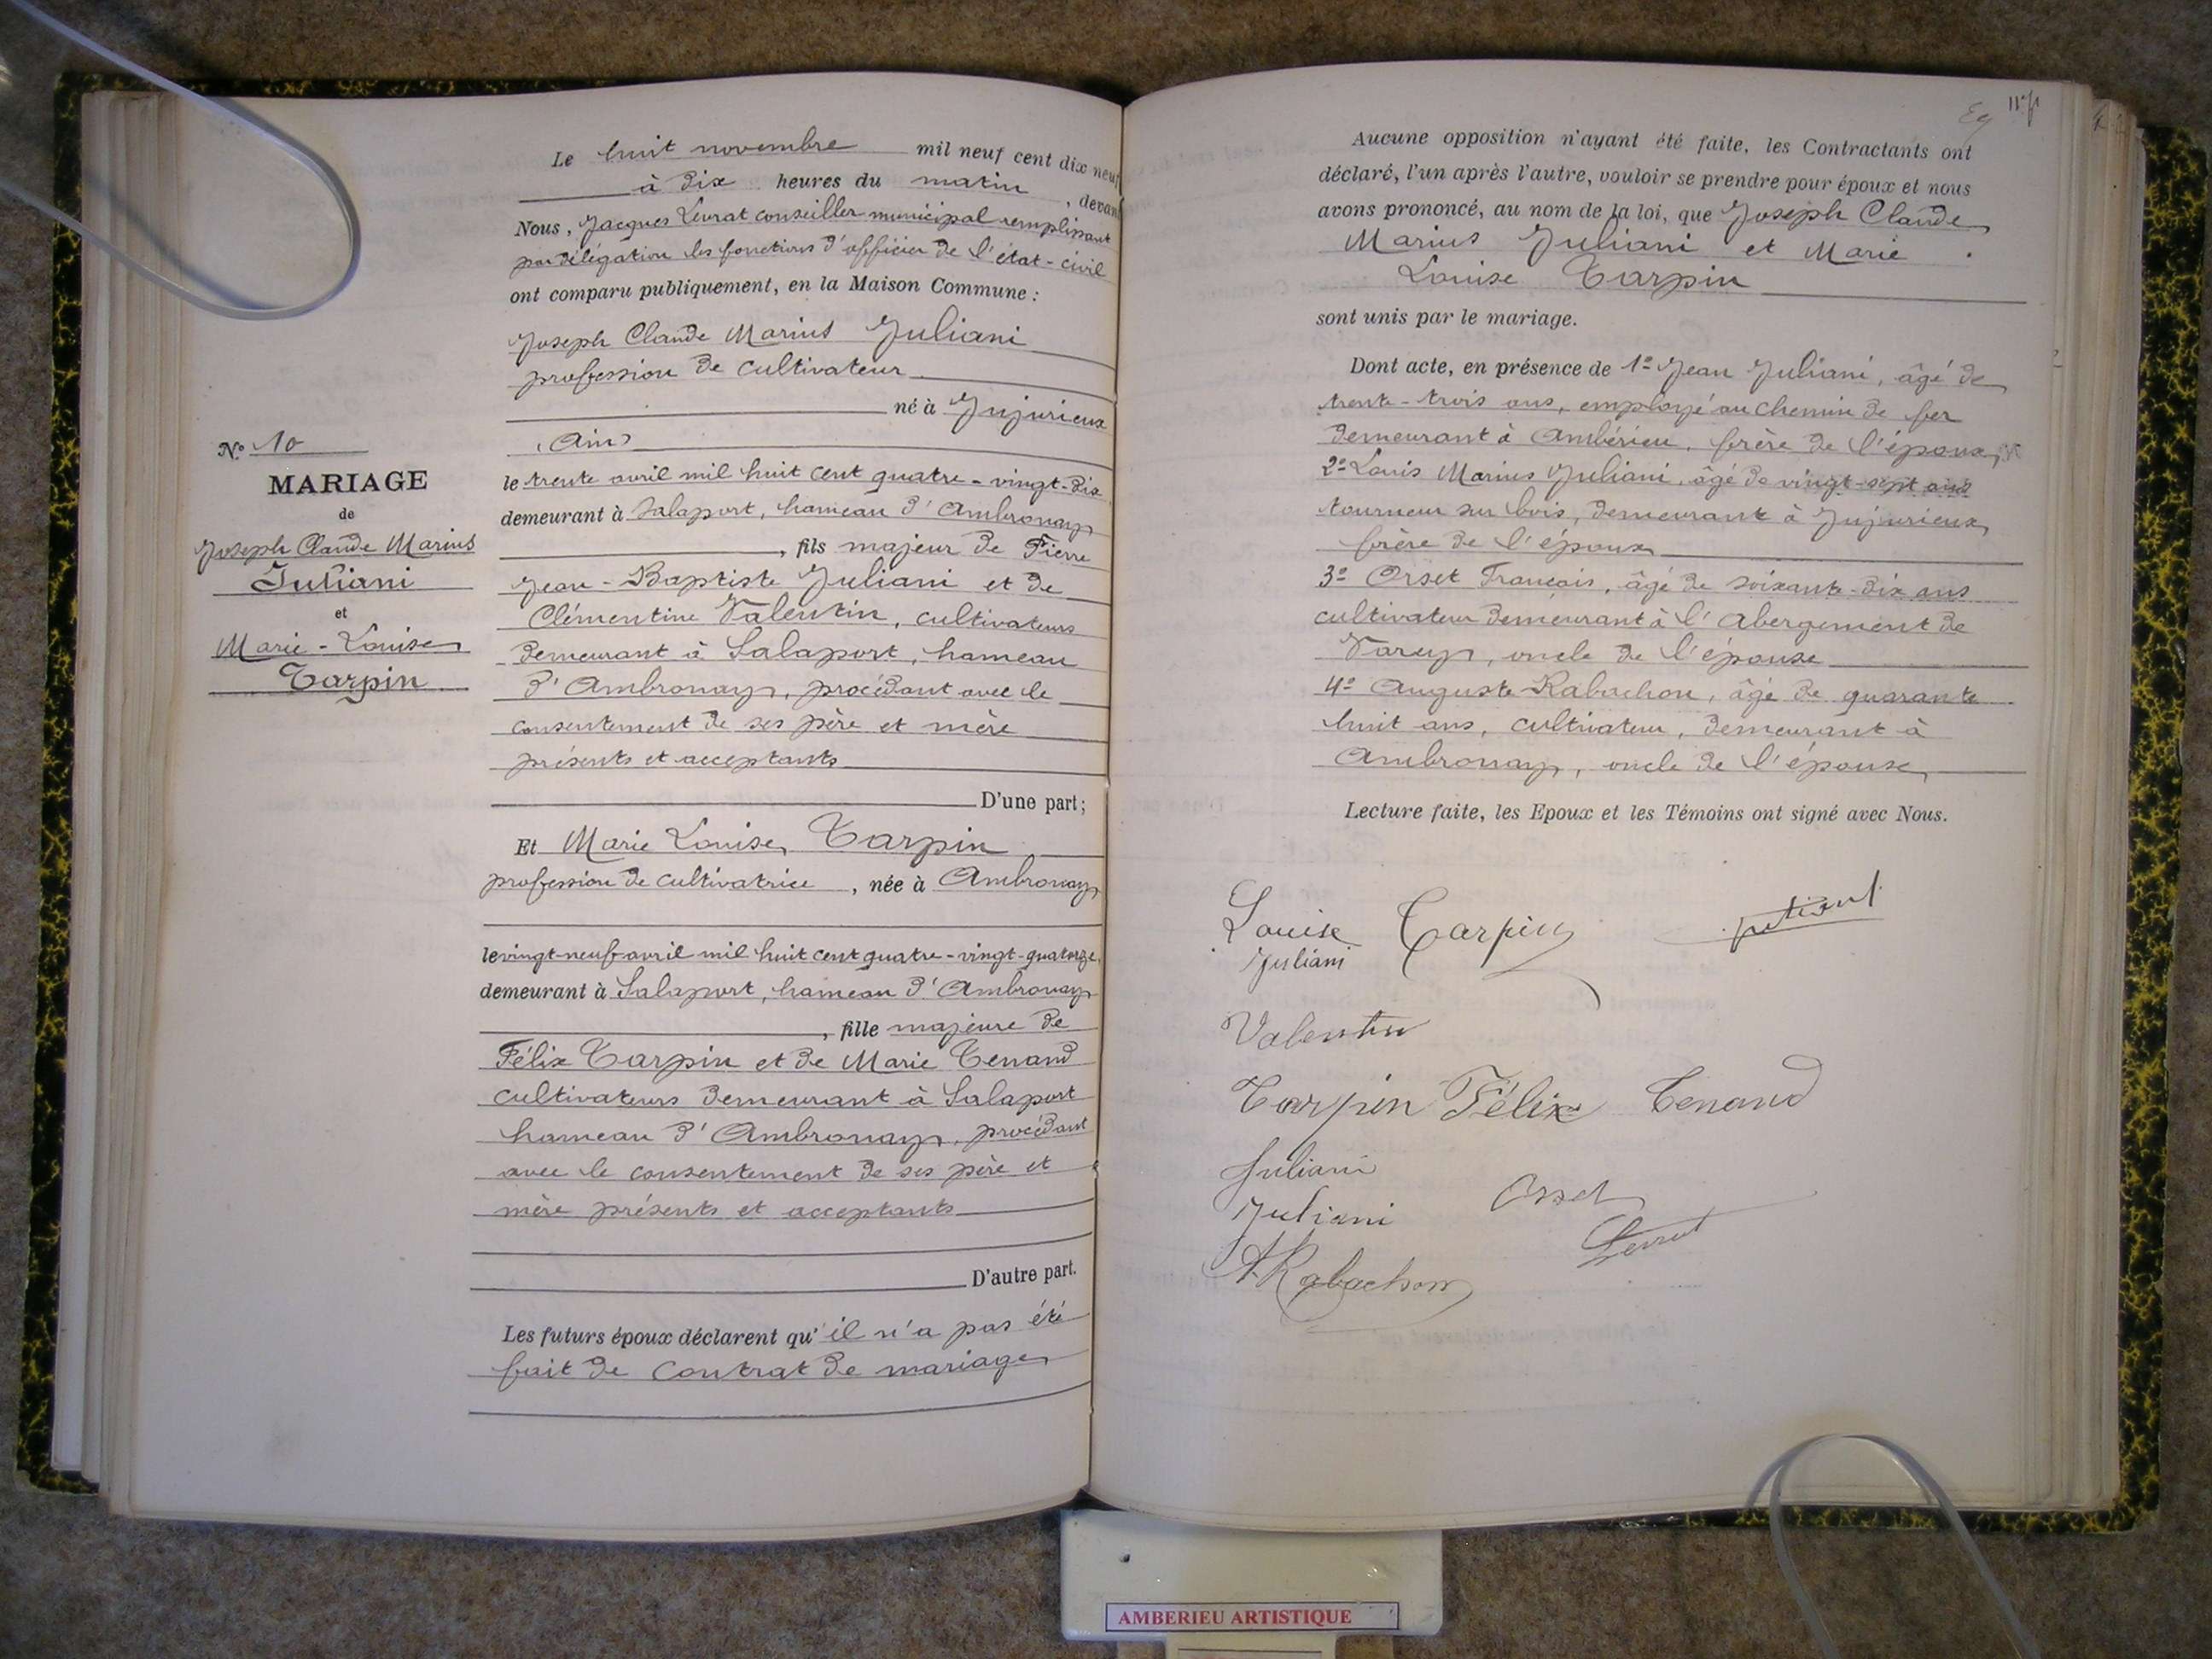 Le huit novembre mil neuf cent dix neuf
à dix heures du matin, devant
Nous, Jacques Levrat conseiller municipal remplissant
par délégation les fonctions d'officier de l'état-civil
ont comparu publiquement, en la Maison Commune :
Joseph Claude Marius Juliani
profession de cultivateur
né à Jujurieux
(Ain)
le trente avril mil huit cent quatre-vingt-dix
demeurant à Salaport, hameau d'Ambronay
, fils majeur de Pierre
Jean-Baptiste Juliani et de
Clémentine Valentin, cultivateurs
demeurant à Salaport, hameau
d'Ambronay, procédant avec le
consentement de ses père et mère
présents et acceptants
D'une part;
Et Marie Louise Tarpin
profession de cultivatrice, née à Ambronay
le vingt-neuf avril mil huit cent quatre-vingt-quatorze,
demeurant à Salaport, hameau d'Ambronay
, fille majeure de
Félix Tarpin et de Marie Tenand
cultivateurs demeurant à Salaport
hameau d'Ambronay, procédant
avec le consentement de ses père et
mère présents et acceptants
D'autre part.
Les futurs époux déclarent qu'il n'a pas été
fait de contrat de mariage
N° 10
MARIAGE
de
Joseph Claude Marius
Juliani
et
Marie-Louise
Tarpin
Aucune opposition n'ayant été faite, les Contractants ont
déclaré, l'un après l'autre, vouloir se prendre pour époux et nous
avons prononcé, au nom de la loi, que Joseph Claude
Marius Juliani et Marie
Louise Tarpin
sont unis par le mariage.
Dont acte, en présence de 1° Jean Juliani, âgé de
trente-trois ans, employé au chemin de fer
demeurant à Ambérieu, frère de l'époux,
2° Louis Marius Juliani, âgé de vingt-sept ans
tourneur sur bois, demeurant à Jujurieux,
frère de l'époux
3° Orset François, âgé de soixante-dix ans
cultivateur demeurant à l'Abergement de
Varey, oncle de l'épouse
4° Auguste Rabachon, âgé de quarante
huit ans, cultivateur, demeurant à
Ambronay, oncle de l'épouse,
Lecture faite, les Epoux et les Témoins ont signé avec Nous.
Louise Tarpin
Juliani
Juliani
Valentin
Tarpin Félix Tenand
Juliani
Juliani Orset
Levrat
A. Rabachon
AMBERIEU ARTISTIQUE